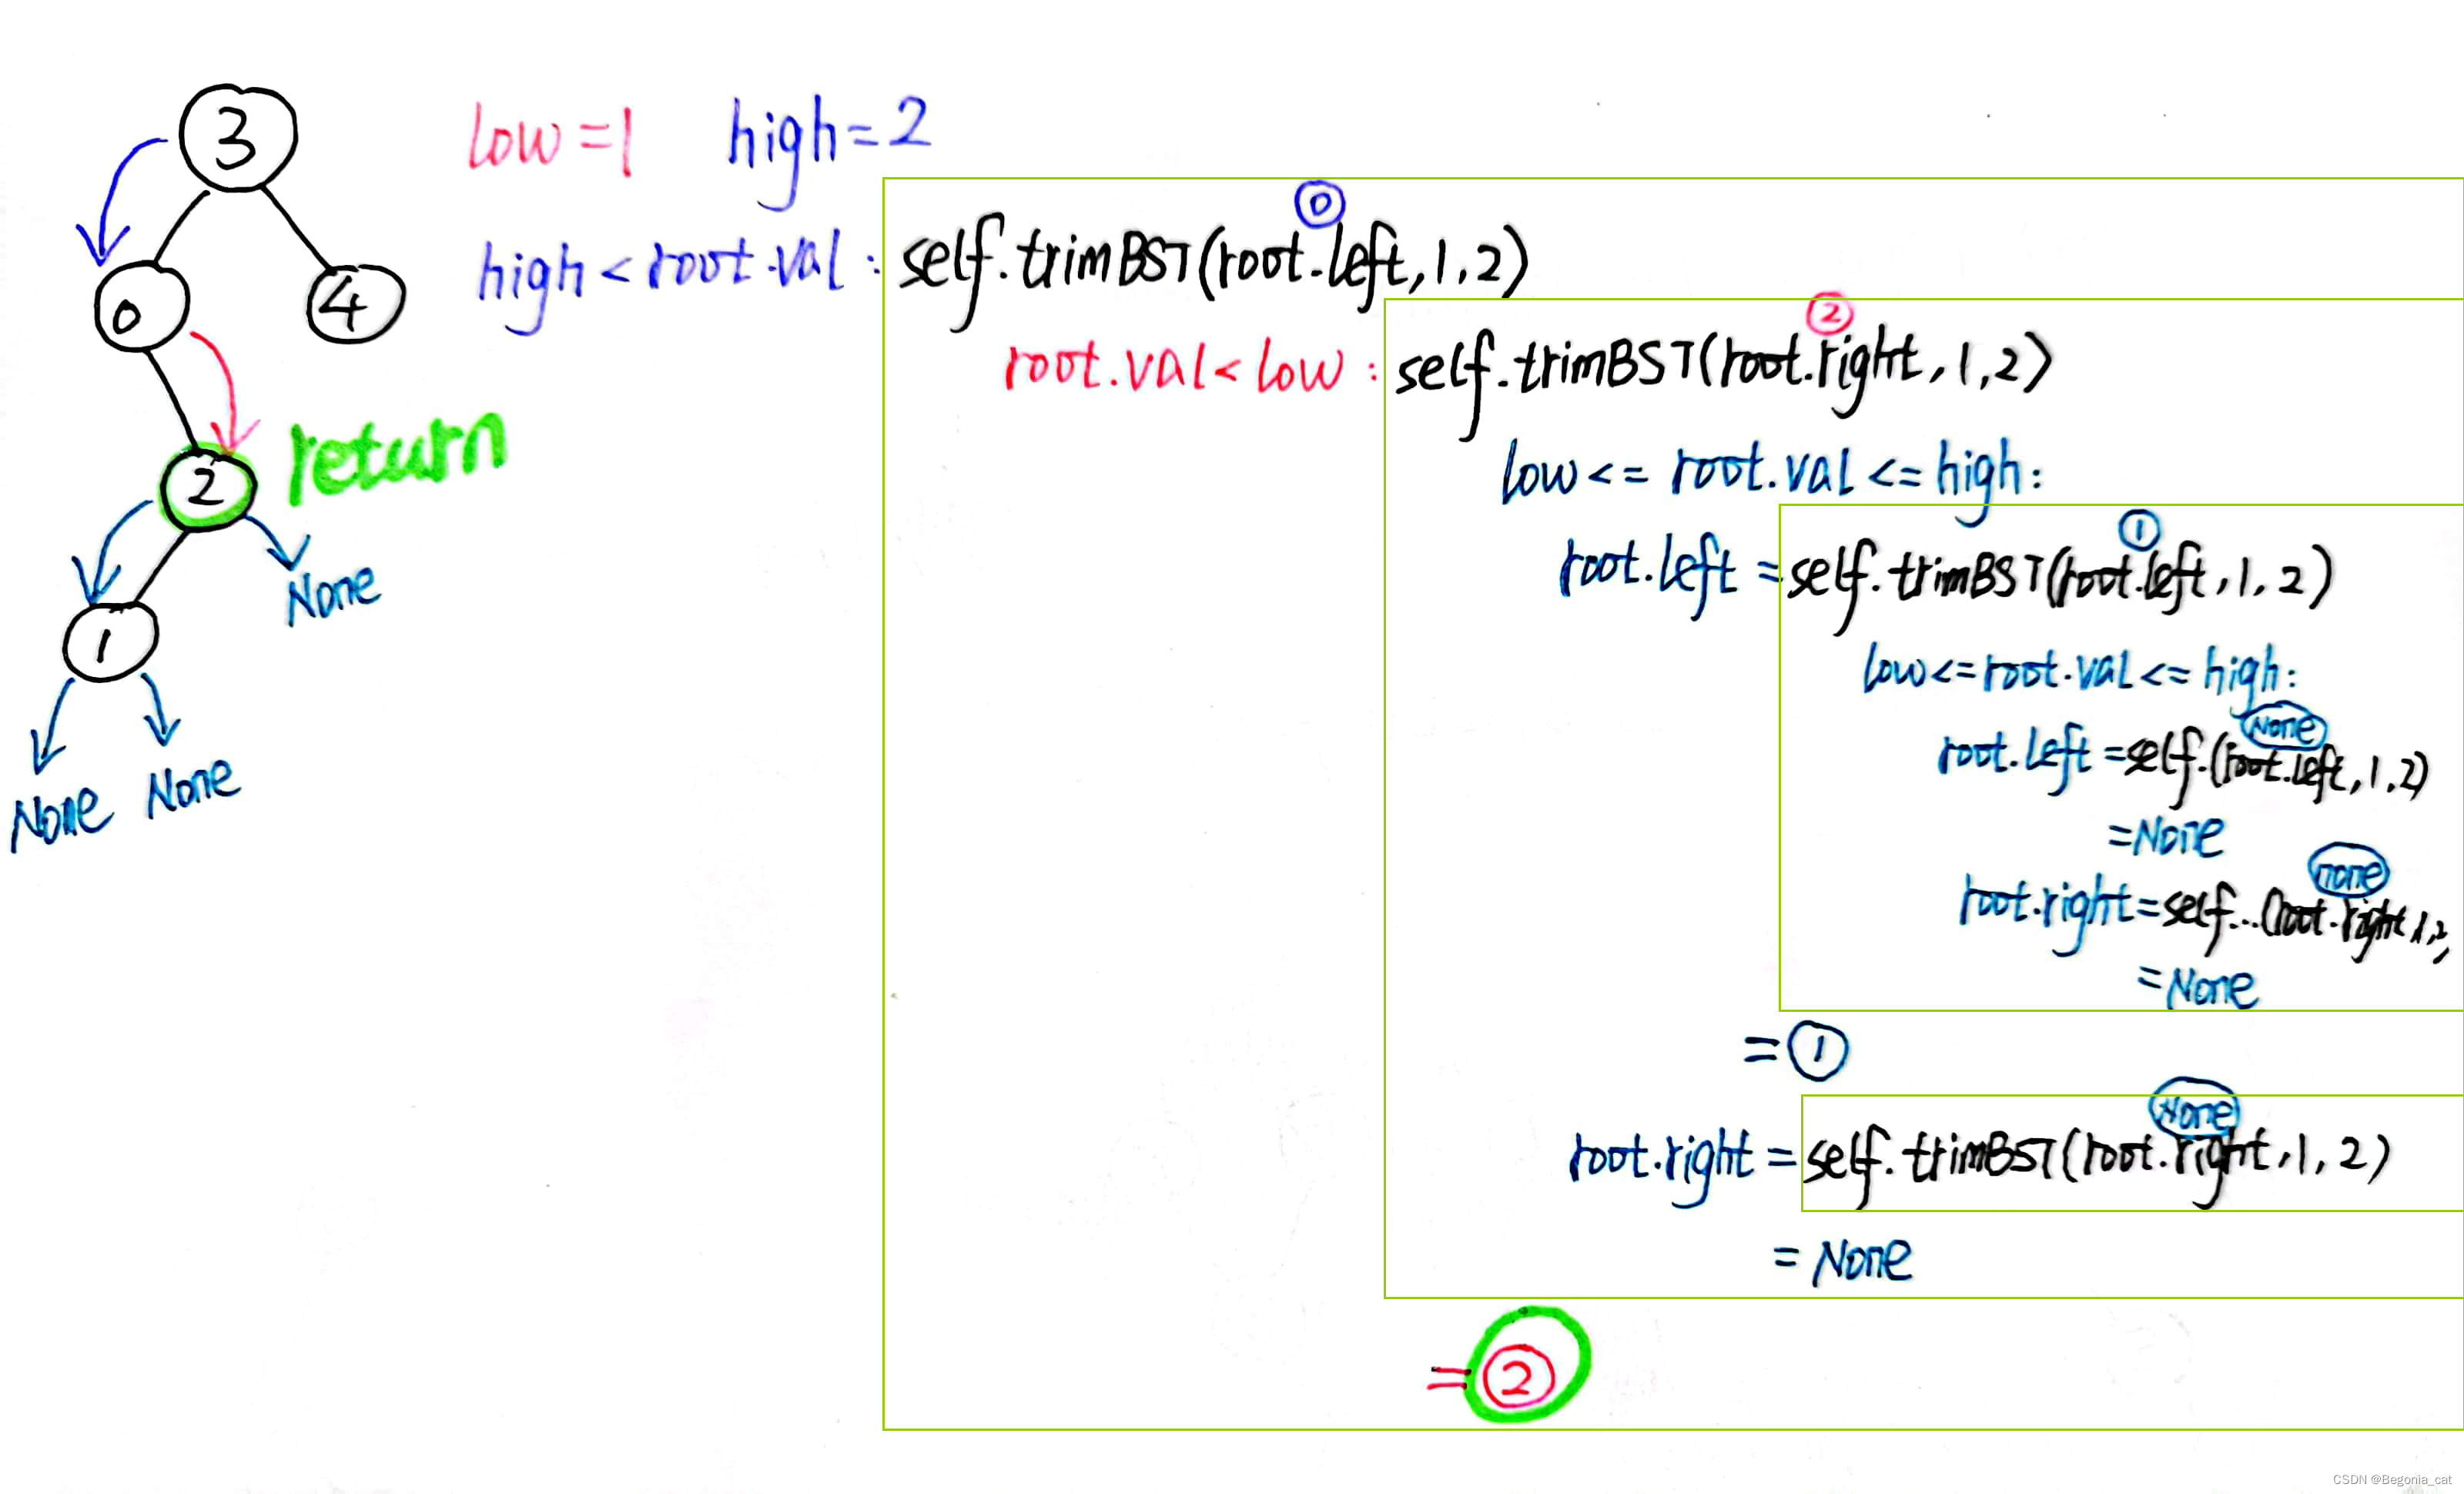 3
low=1 high=2
0
high<root.val: self.trimBST(root.left,1,2)
0 4
2
root.val<low: self.trimBST(root.right,1,2)
return
low<=root.val<=high:
2
1
None
root.left=self.trimBST(root.left,1,2)
1
low<=root.val<=high:
None
root.left=self.(root.left,1,2)
None None
=None
none
root.right=self...(root.right,1,2,
=None
=1
None
root.right=self.trimBST(root.right,1,2)
=None
=2
CSDN @Begonia_cat